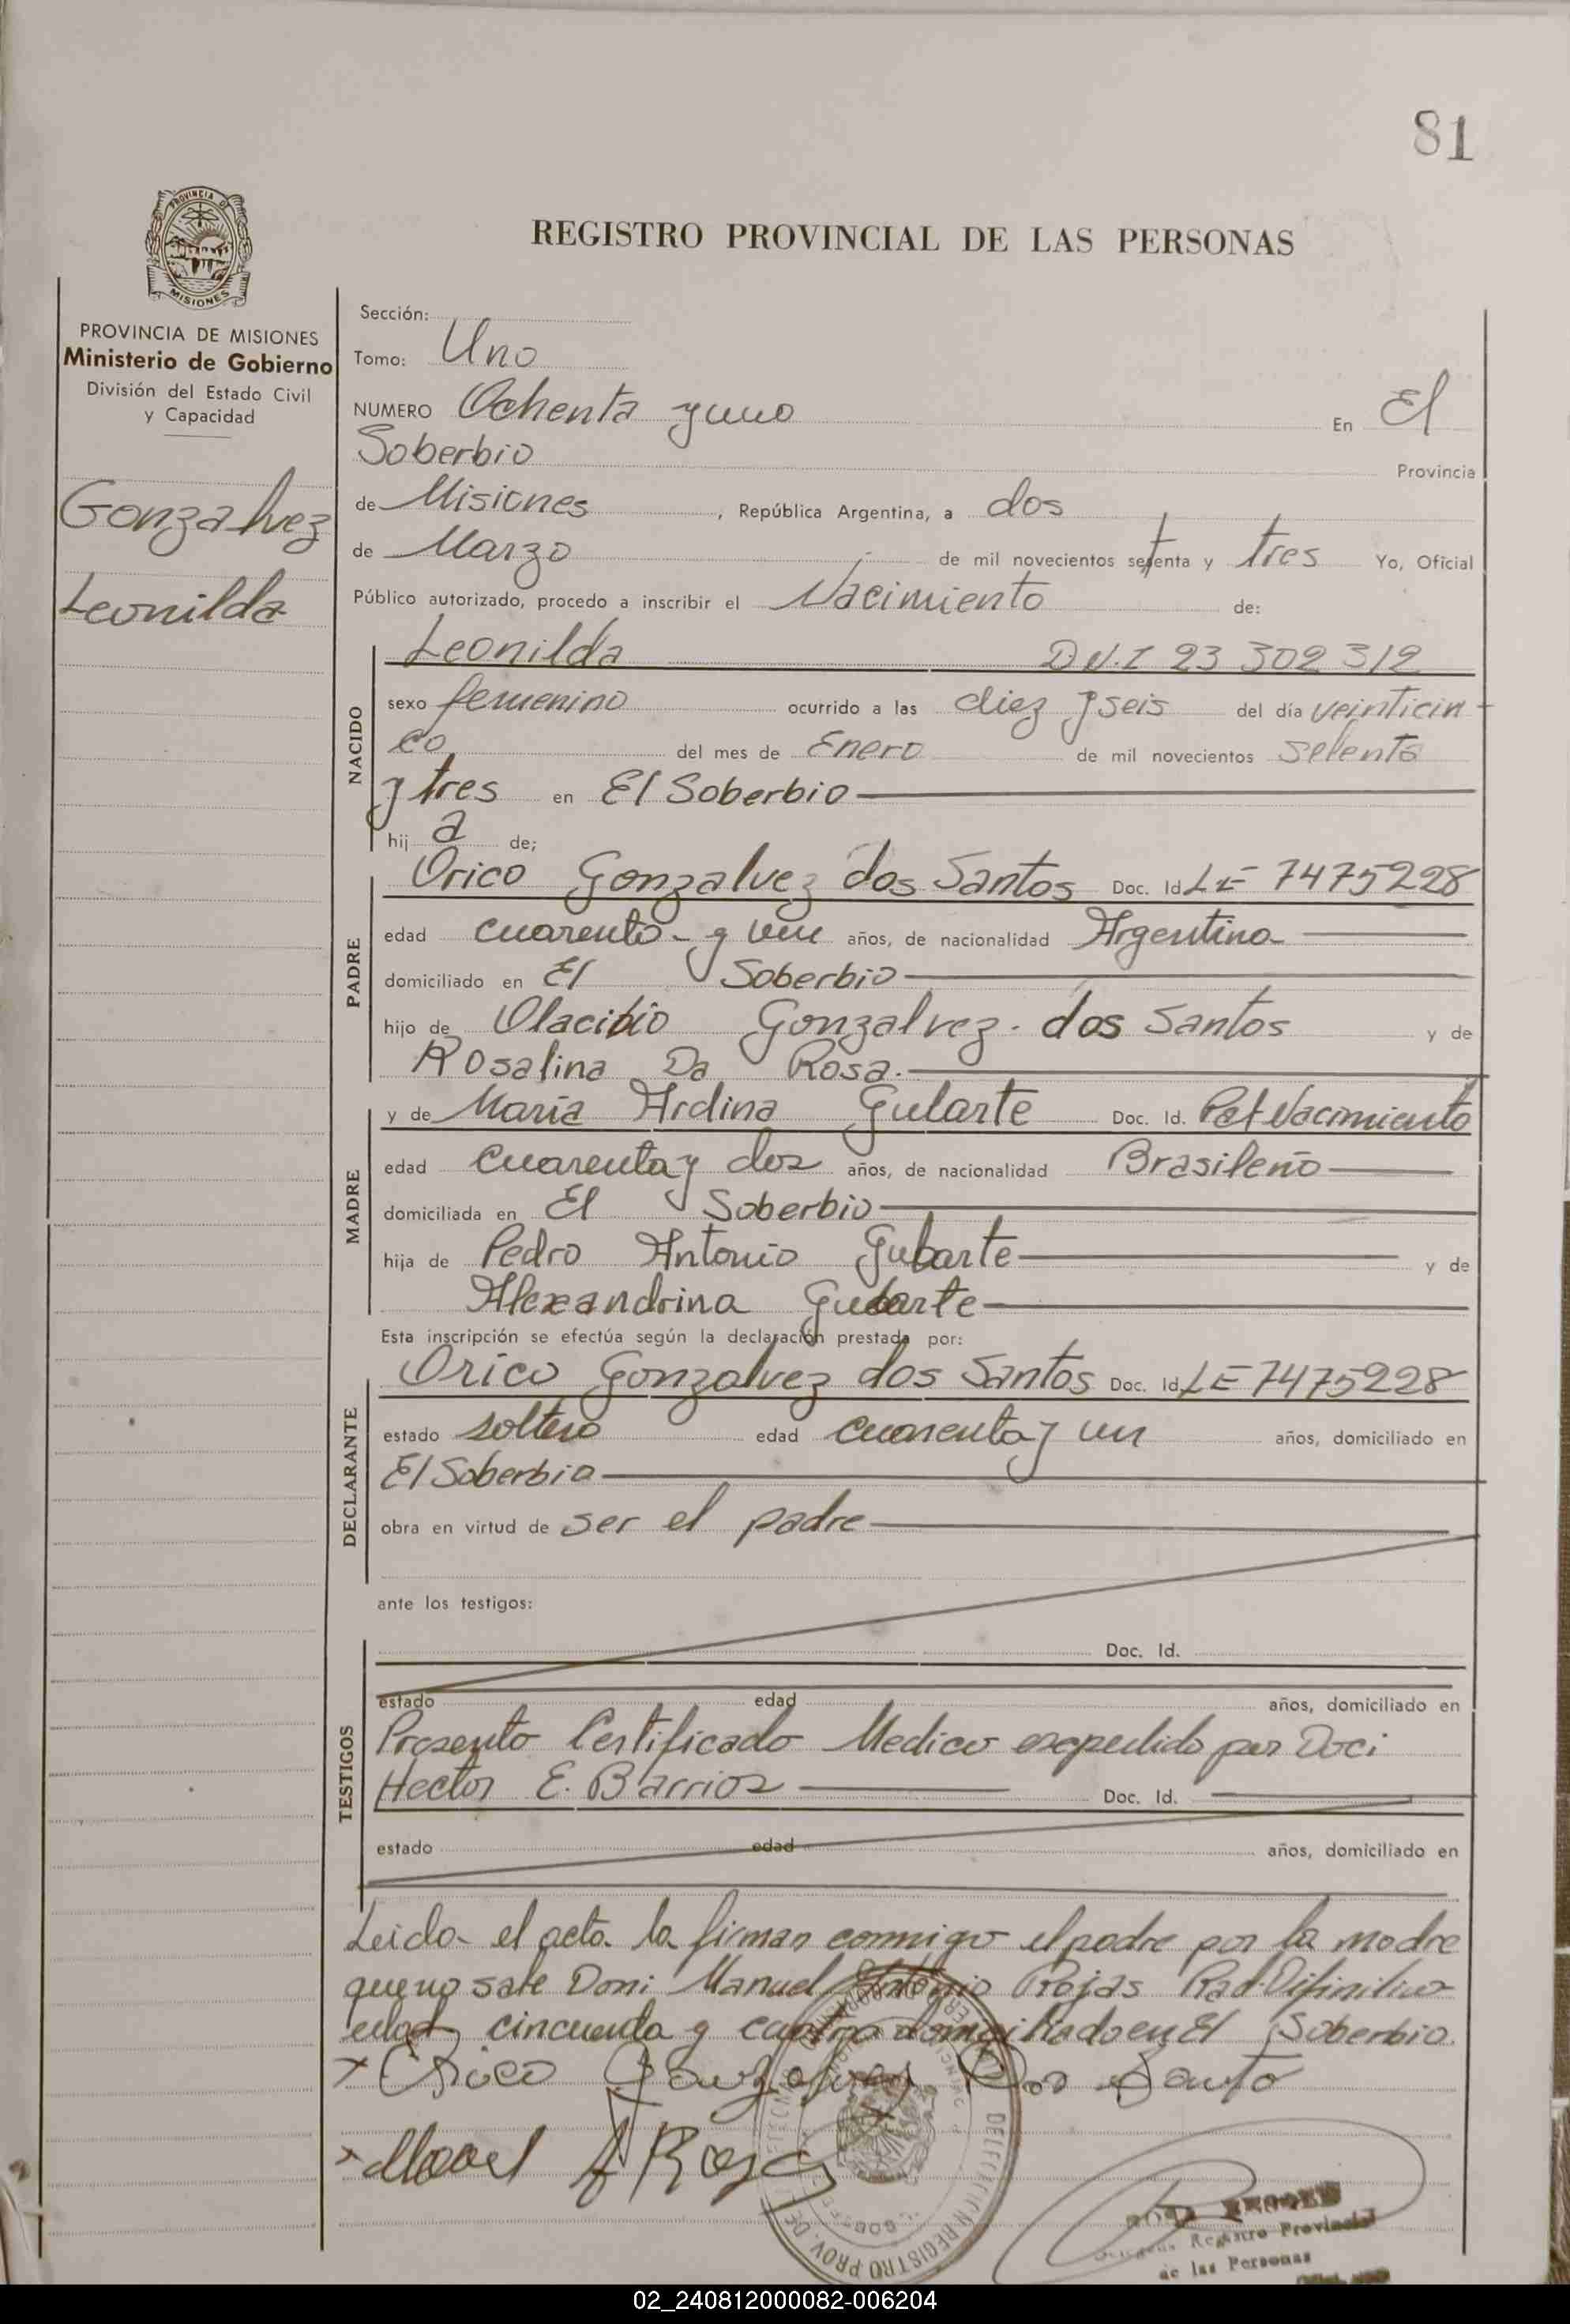 81
PROVINCIA DE
MISIONES
REGISTRO PROVINCIAL DE LAS PERSONAS
PROVINCIA DE MISIONES
Ministerio de Gobierno
División del Estado Civil
y Capacidad
Gonzalvez
Leonilda
Sección:
Tomo: Uno
NUMERO Ochenta y uno En El
Soberbio Provincia
de Misiones, República Argentina, a dos
de Marzo de mil novecientos setenta y tres Yo, Oficial
Público autorizado, procedo a inscribir el Nacimiento de:
Leonilda D.N.I 23 302 312
NACIDO
sexo femenino ocurrido a las diez y seis del día veinticin
co del mes de Enero de mil novecientos setenta
y tres en El Soberbio
hij a de;
PADRE
Orico Gonzalvez dos Santos Doc. Id. LE 7475228
edad cuarenta y un años, de nacionalidad Argentina
domiciliado en El Soberbio
hijo de Olacibio Gonzalvez dos Santos y de
Rosalina Da Rosa.
MADRE
y de María Ardina Gularte Doc. Id. Pat Nacimiento
edad cuarenta y dos años, de nacionalidad Brasileño
domiciliada en El Soberbio
hija de Pedro Antonio Gularte y de
Alexandrina Gularte
Esta inscripción se efectúa según la declaración prestada por:
DECLARANTE
Orico Gonzalvez dos Santos Doc. Id. LE 7475228
estado soltero edad cuarenta y un años, domiciliado en
El Soberbio
obra en virtud de ser el padre
ante los testigos:
TESTIGOS
Doc. Id.
estado edad años, domiciliado en
Presento Certificado Medico expedido por Doci
Hector E. Barrios Doc. Id.
estado edad años, domiciliado en
Leida el acta la firman conmigo el padre por la madre
que no sabe Doni Manuel Antonio Rojas Rad. Difinitiva
edad cincuenta y cuatro domiciliado en El Soberbio.
x Orico Gonzalvez Dos Santo
x Manuel A Rojas
DELEGACION REGISTRO PROV. DE
Registro Provincial
de las Personas
02_240812000082-006204